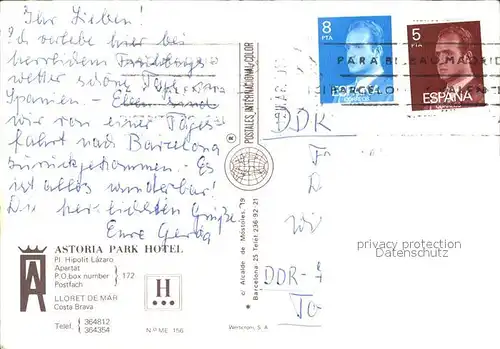 Ihr Lieben!
Ich verlebe hier bei
herrlichem Frühlings-
wetter schöne Tage in
Spanien. - Eben sind
wir von einer Tages-
fahrt nach Barcelona
zurückgekommen. - Es
ist alles wunderbar!
Die herzlichsten Grüße
Eure Gerda
ASTORIA PARK HOTEL
Pl. Hipolit Lázaro
Apartat
P.O. box number } 172
Postfach
LLORET DE MAR
Costa Brava
Telef. { 364812
364354
H
N.º ME. 156
POSTALES INTERNACIONAL-COLOR
®
c/ Alcalde de Móstoles, 19
Barcelona 25 Telef. 236-92-21
Werticrom, S. A.
8
PTA
5
PTA
CORREOS
ESPAÑA
PARA BILBAO, MADRID
BARCELONA
DDR
DDR-
privacy protection
anywhere